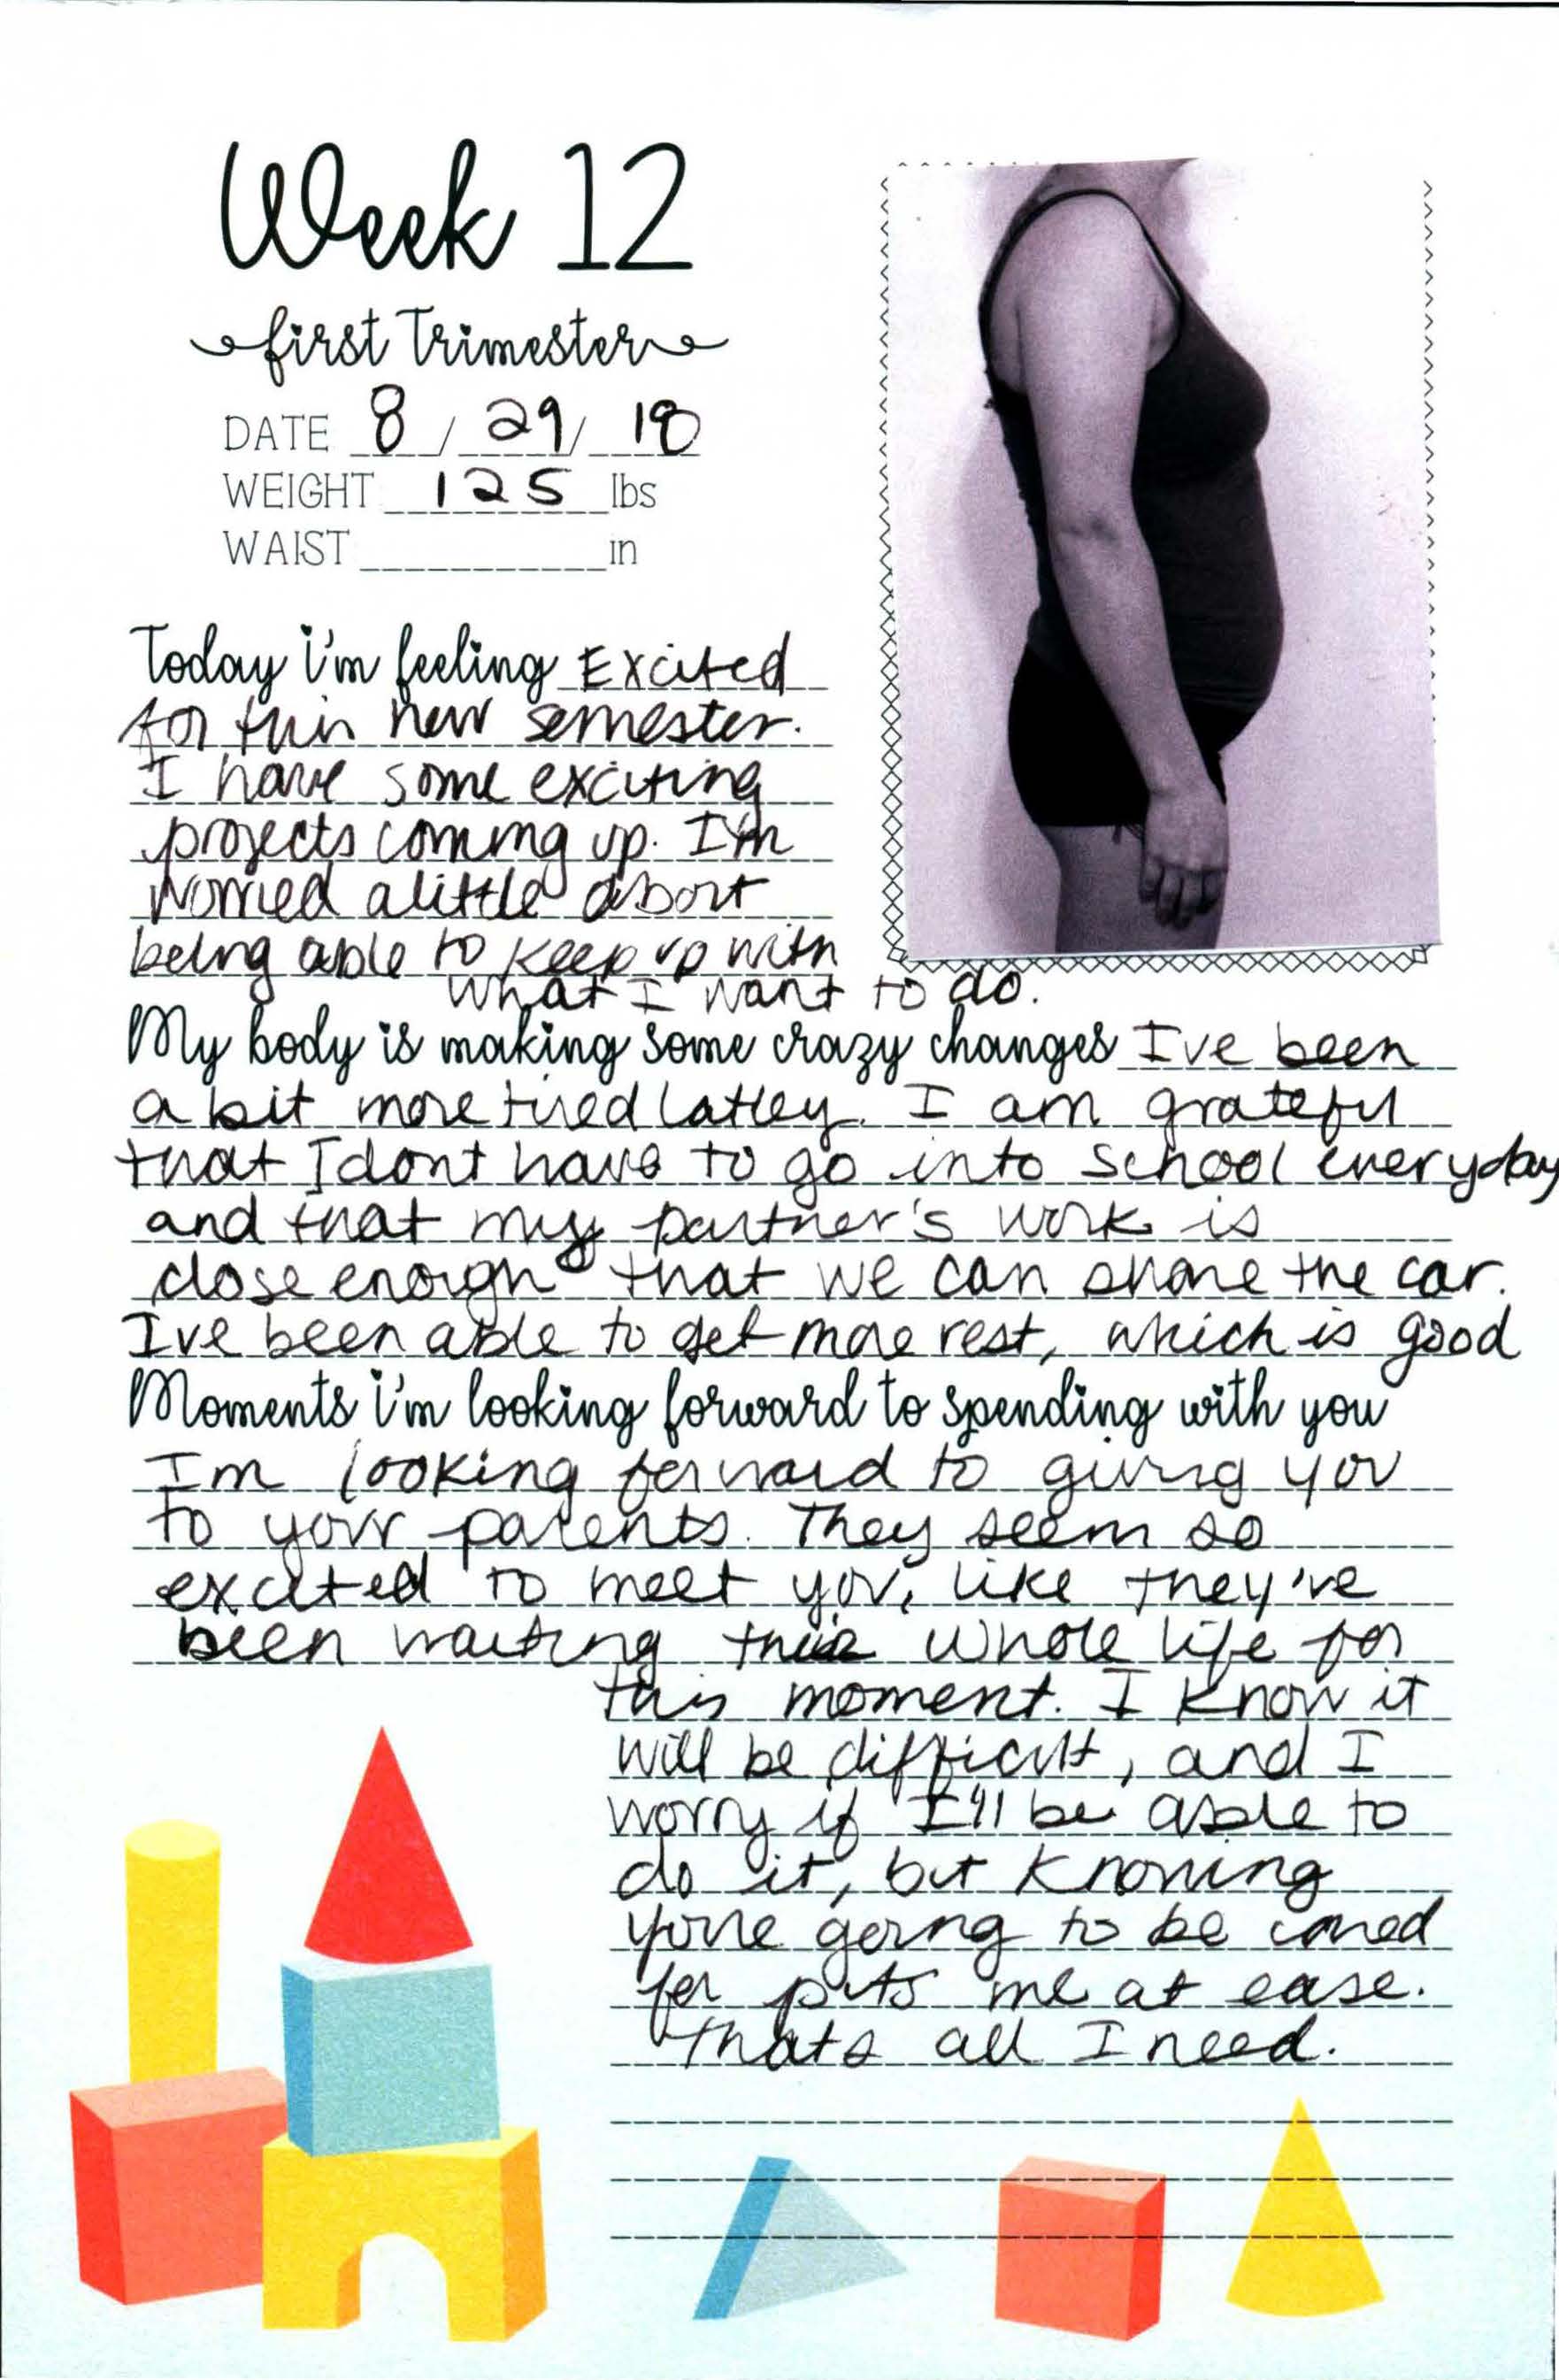 Week 12
first Trimester
DATE 8 / 29 / 18
WEIGHT 125 lbs
WAIST in
Today i'm feeling Excited
for this new semester.
I have some exciting
projects coming up. I'm
worried a little about
being able to keep up with
what I want to do.
My body is making some crazy changes I've been
a bit more tired latley. I am grateful
that I dont have to go into school everyday
and that my partner's work is
close enough that we can share the car.
I've been able to get more rest, which is good
Moments i'm looking forward to spending with you
Im looking forward to giving you
to your parents. They seem so
excited to meet you, like they've
been waiting their whole life for
this moment. I know it
will be difficult, and I
worry if I'll be able to
do it, but knowing
you're going to be cared
for puts me at ease.
thats all I need.